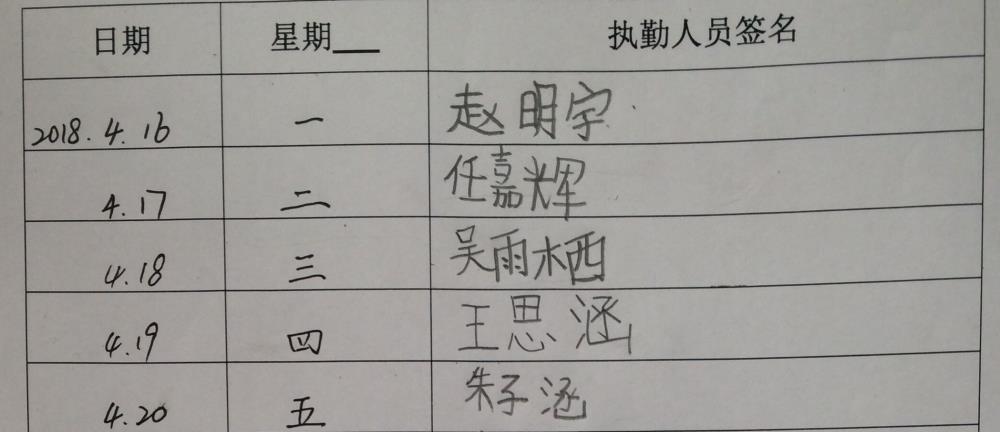 日期 星期___ 执勤人员签名
2018.4.16 一 赵明宇
4.17 二 任嘉辉
4.18 三 吴雨栖
4.19 四 王思涵
4.20 五 朱子涵